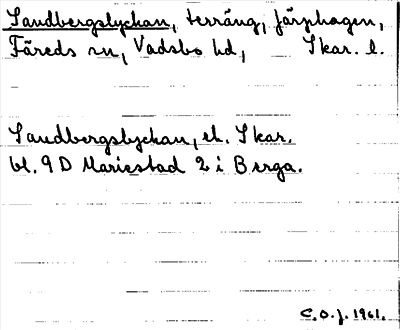 Sandbergslyckan, terräng, Järphagen,
Färeds sn, Vadsbo hd, Skar. l.
Sandbergslyckan, ek. Skar.
bl. 9 D Mariestad 2 i Berga.
C.O.J. 1961.